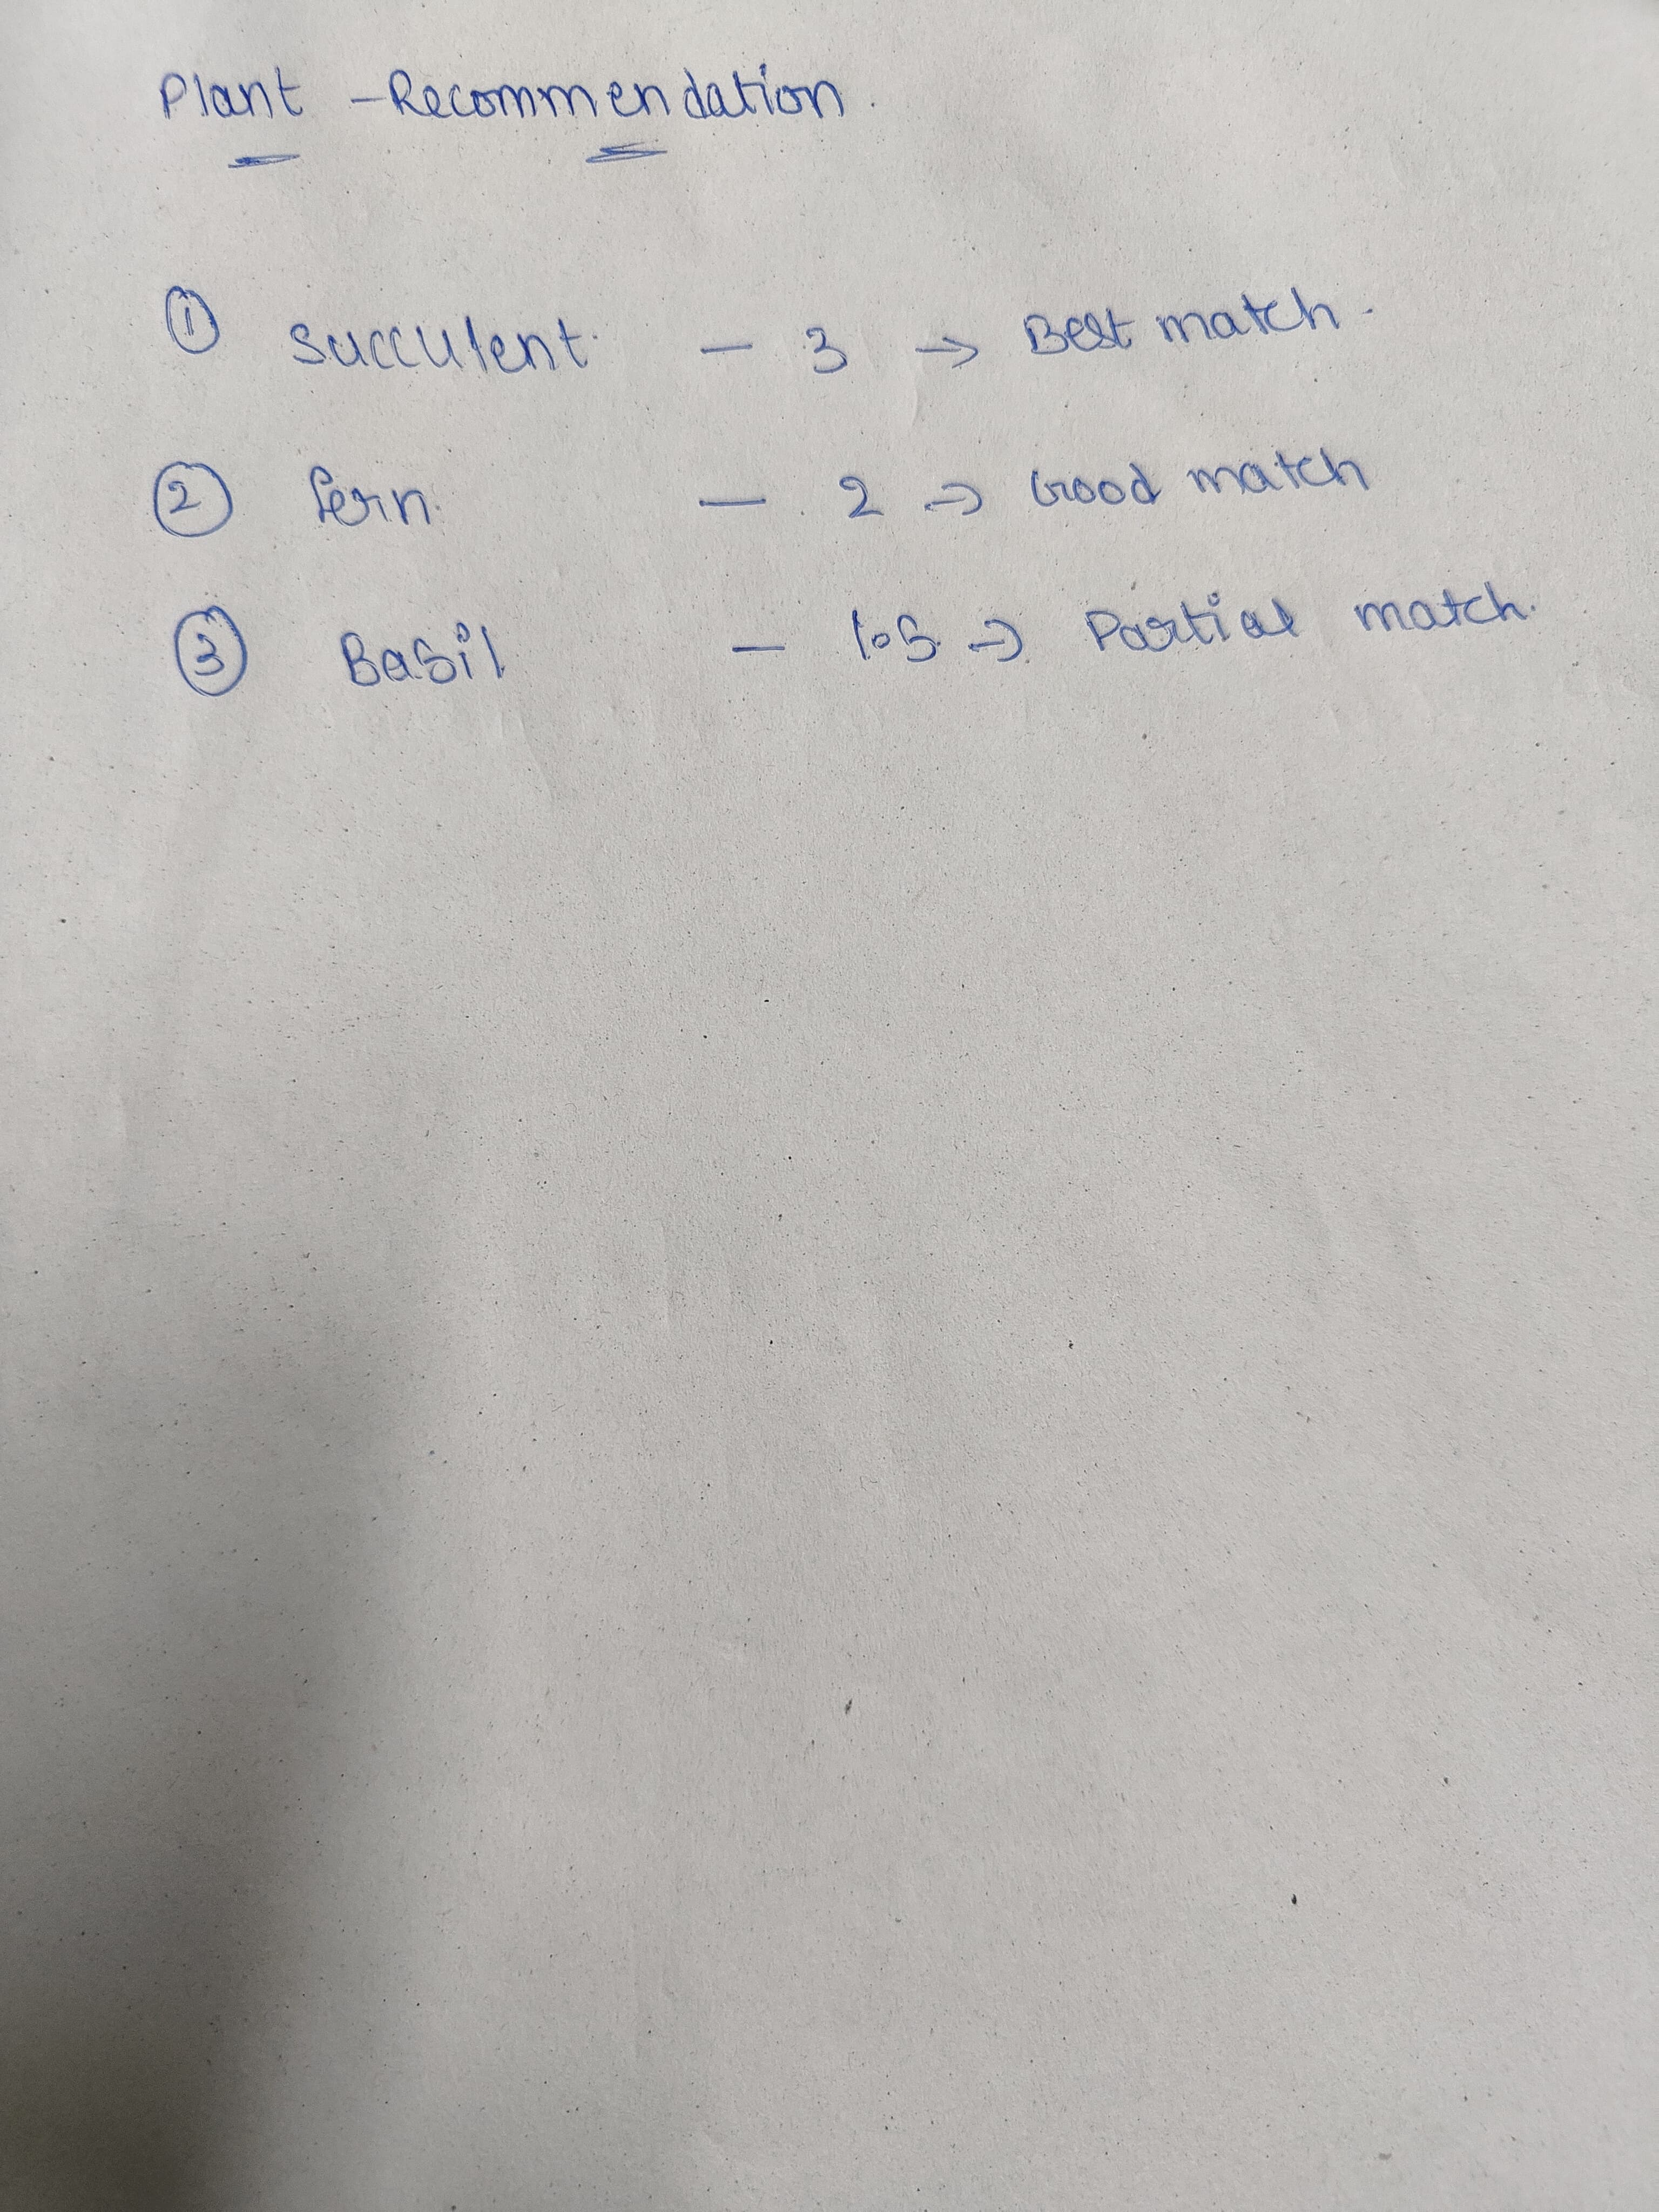 Plant - Recommendation.
① Succulent. - 3 → Best match.
② fern. - 2 → Good match
③ Basil - 1.5. → Partial match.